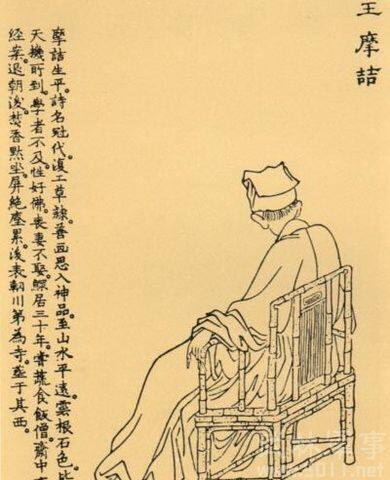 王摩詰
摩詰生平。詩名冠代。復工草隸。善画。思入神品。至山水平遠。雲根石色。
天機所到。學者不及。性好佛。喪妻不娶。鰥居三十年。嘗蔬食飯僧。齋中
經案。退朝後。焚香默坐。屏絕塵累。後表輞川第為寺。葬于其西。